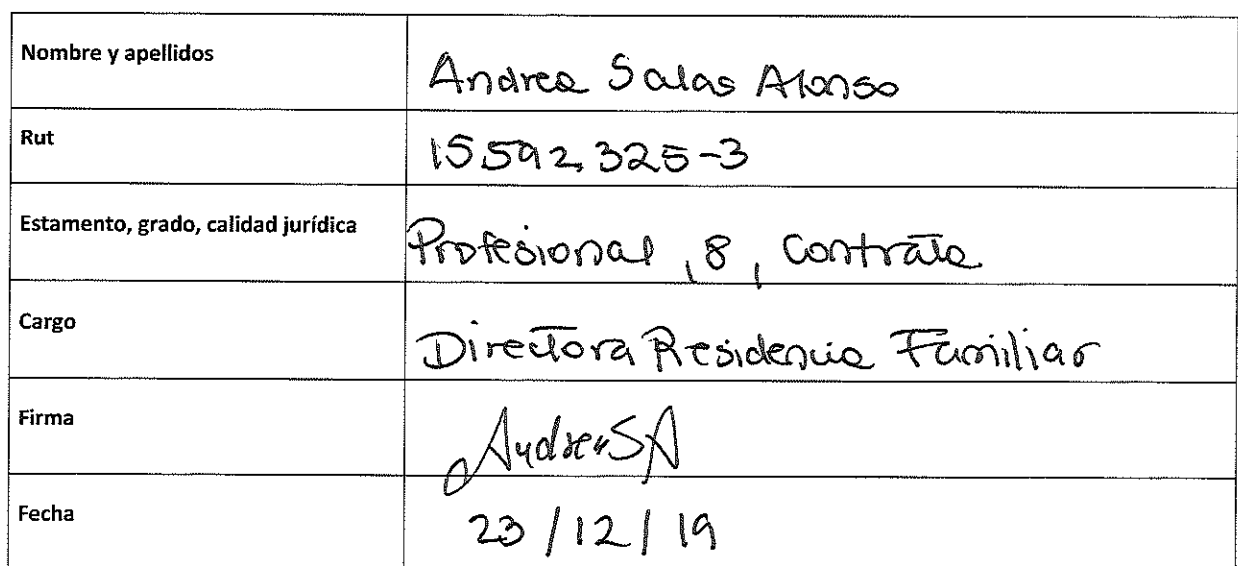 Nombre y apellidos Andrea Salas Alonso
Rut 15.592.325-3
Estamento, grado, calidad jurídica Profesional, 8, Contrata
Cargo Directora Residencia Familiar
Firma AndreaSA
Fecha 23/12/19